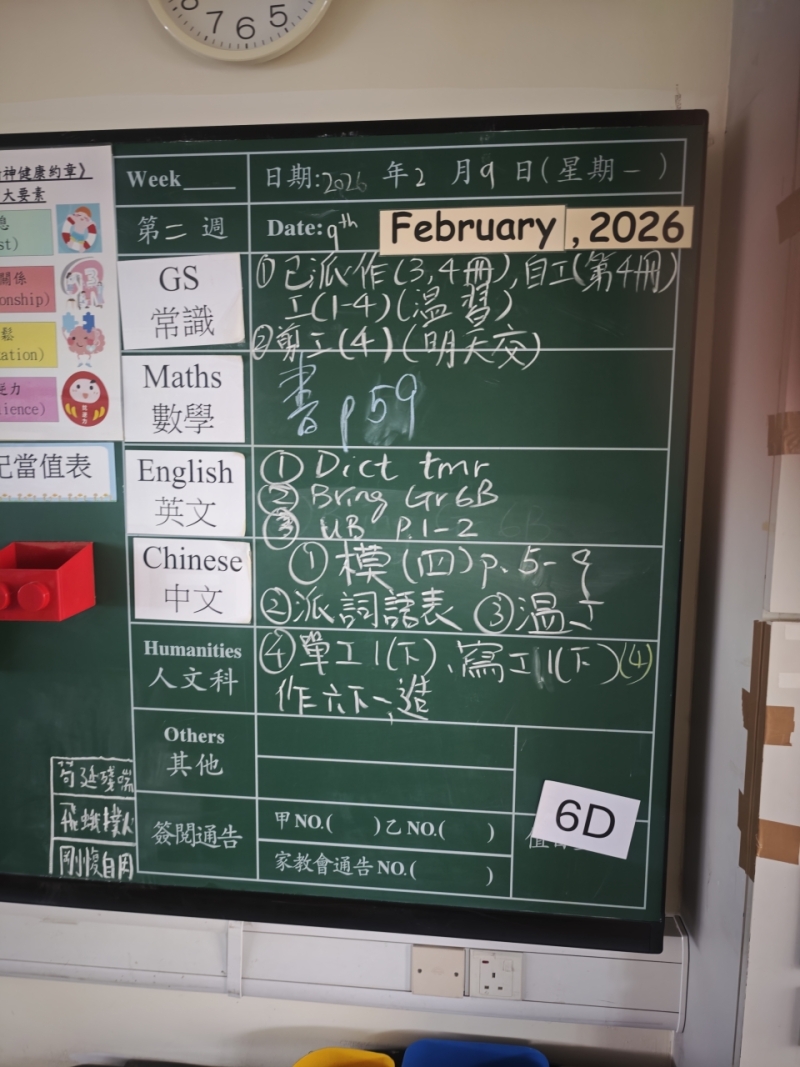 7 6 5
神健康約章》
大要素
st)
關係
onship)
鬆
ation)
力
lience)
記當值表
Week____ 日期:2026 年2 月9 日(星期一)
第二週 Date: 9th February, 2026
GS
常識
①已派作(3,4冊),自工(第4冊)
工(1-4)(温習)
②剪工(4)(明天交)
Maths
數學
書 p59
English
英文
① Dict tmr
② Bring Gr 6B
③ UB P.1-2
Chinese
中文
①模(四)p.5-9
②派詞語表 ③温
Humanities
人文科
④單工1(下)、寫工1(下)(4)
作六下一,造
Others
其他
簽閱通告
甲NO.( )乙NO.( )
家教會通告NO.( )
6D
苟延殘喘
飛蛾撲火
剛愎自用